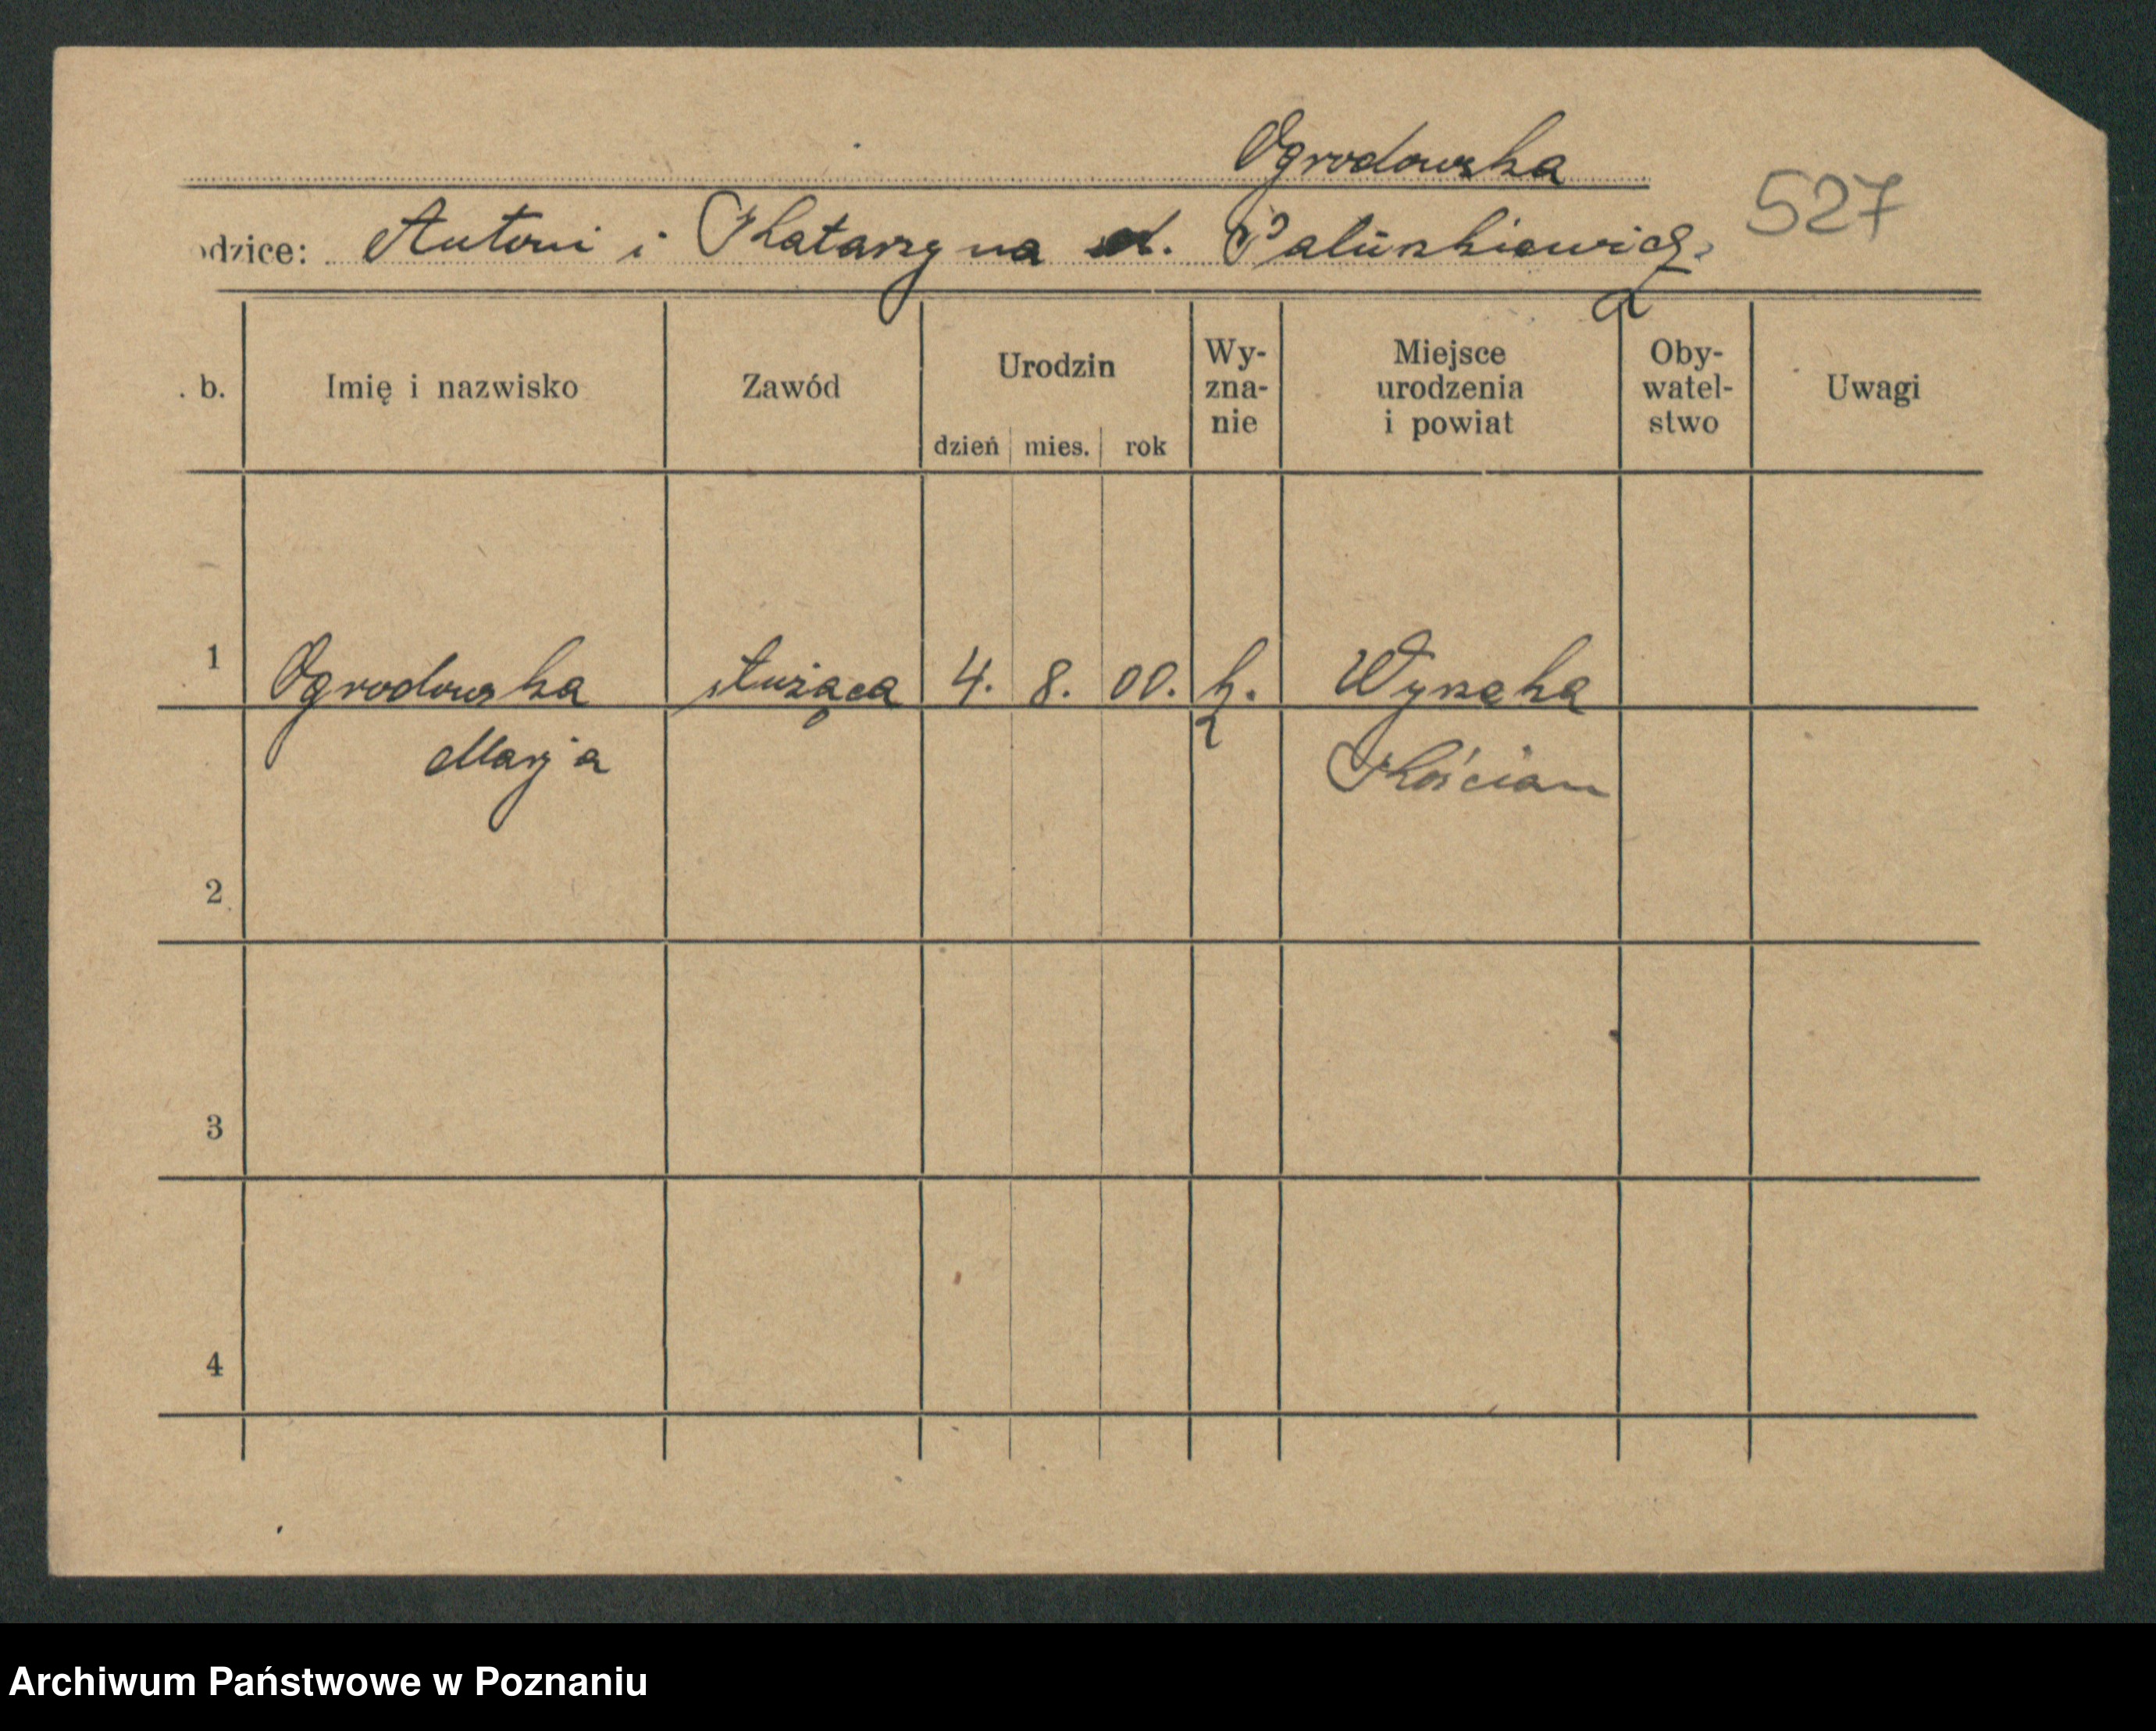 Ogrodowska
527
odzice: Antoni i Katarzyna d.
. b. Imię i nazwisko Zawód Urodzin dzień mies. rok Wy-zna-nie Miejsce urodzenia i powiat Oby-watel-stwo Uwagi
1 Ogrodowska służąca 4. 8. 00. k.
Marja Kościan
2
3
4
Archiwum Państwowe w Poznaniu